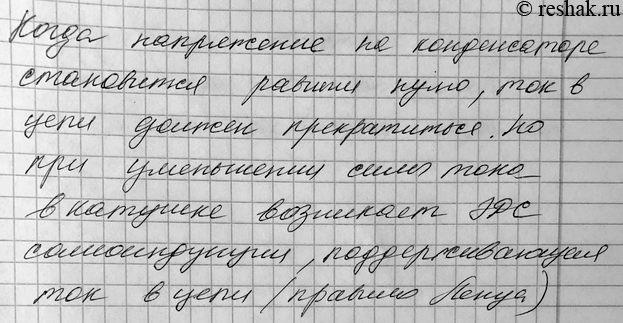 © reshak.ru
Когда напряжение на конденсаторе
становится равным нулю, ток в
цепи должен прекратиться. Но
при уменьшении силы тока
в катушке возникает ЭДС
самоиндукции, поддерживающая
ток в цепи (правило Ленца)